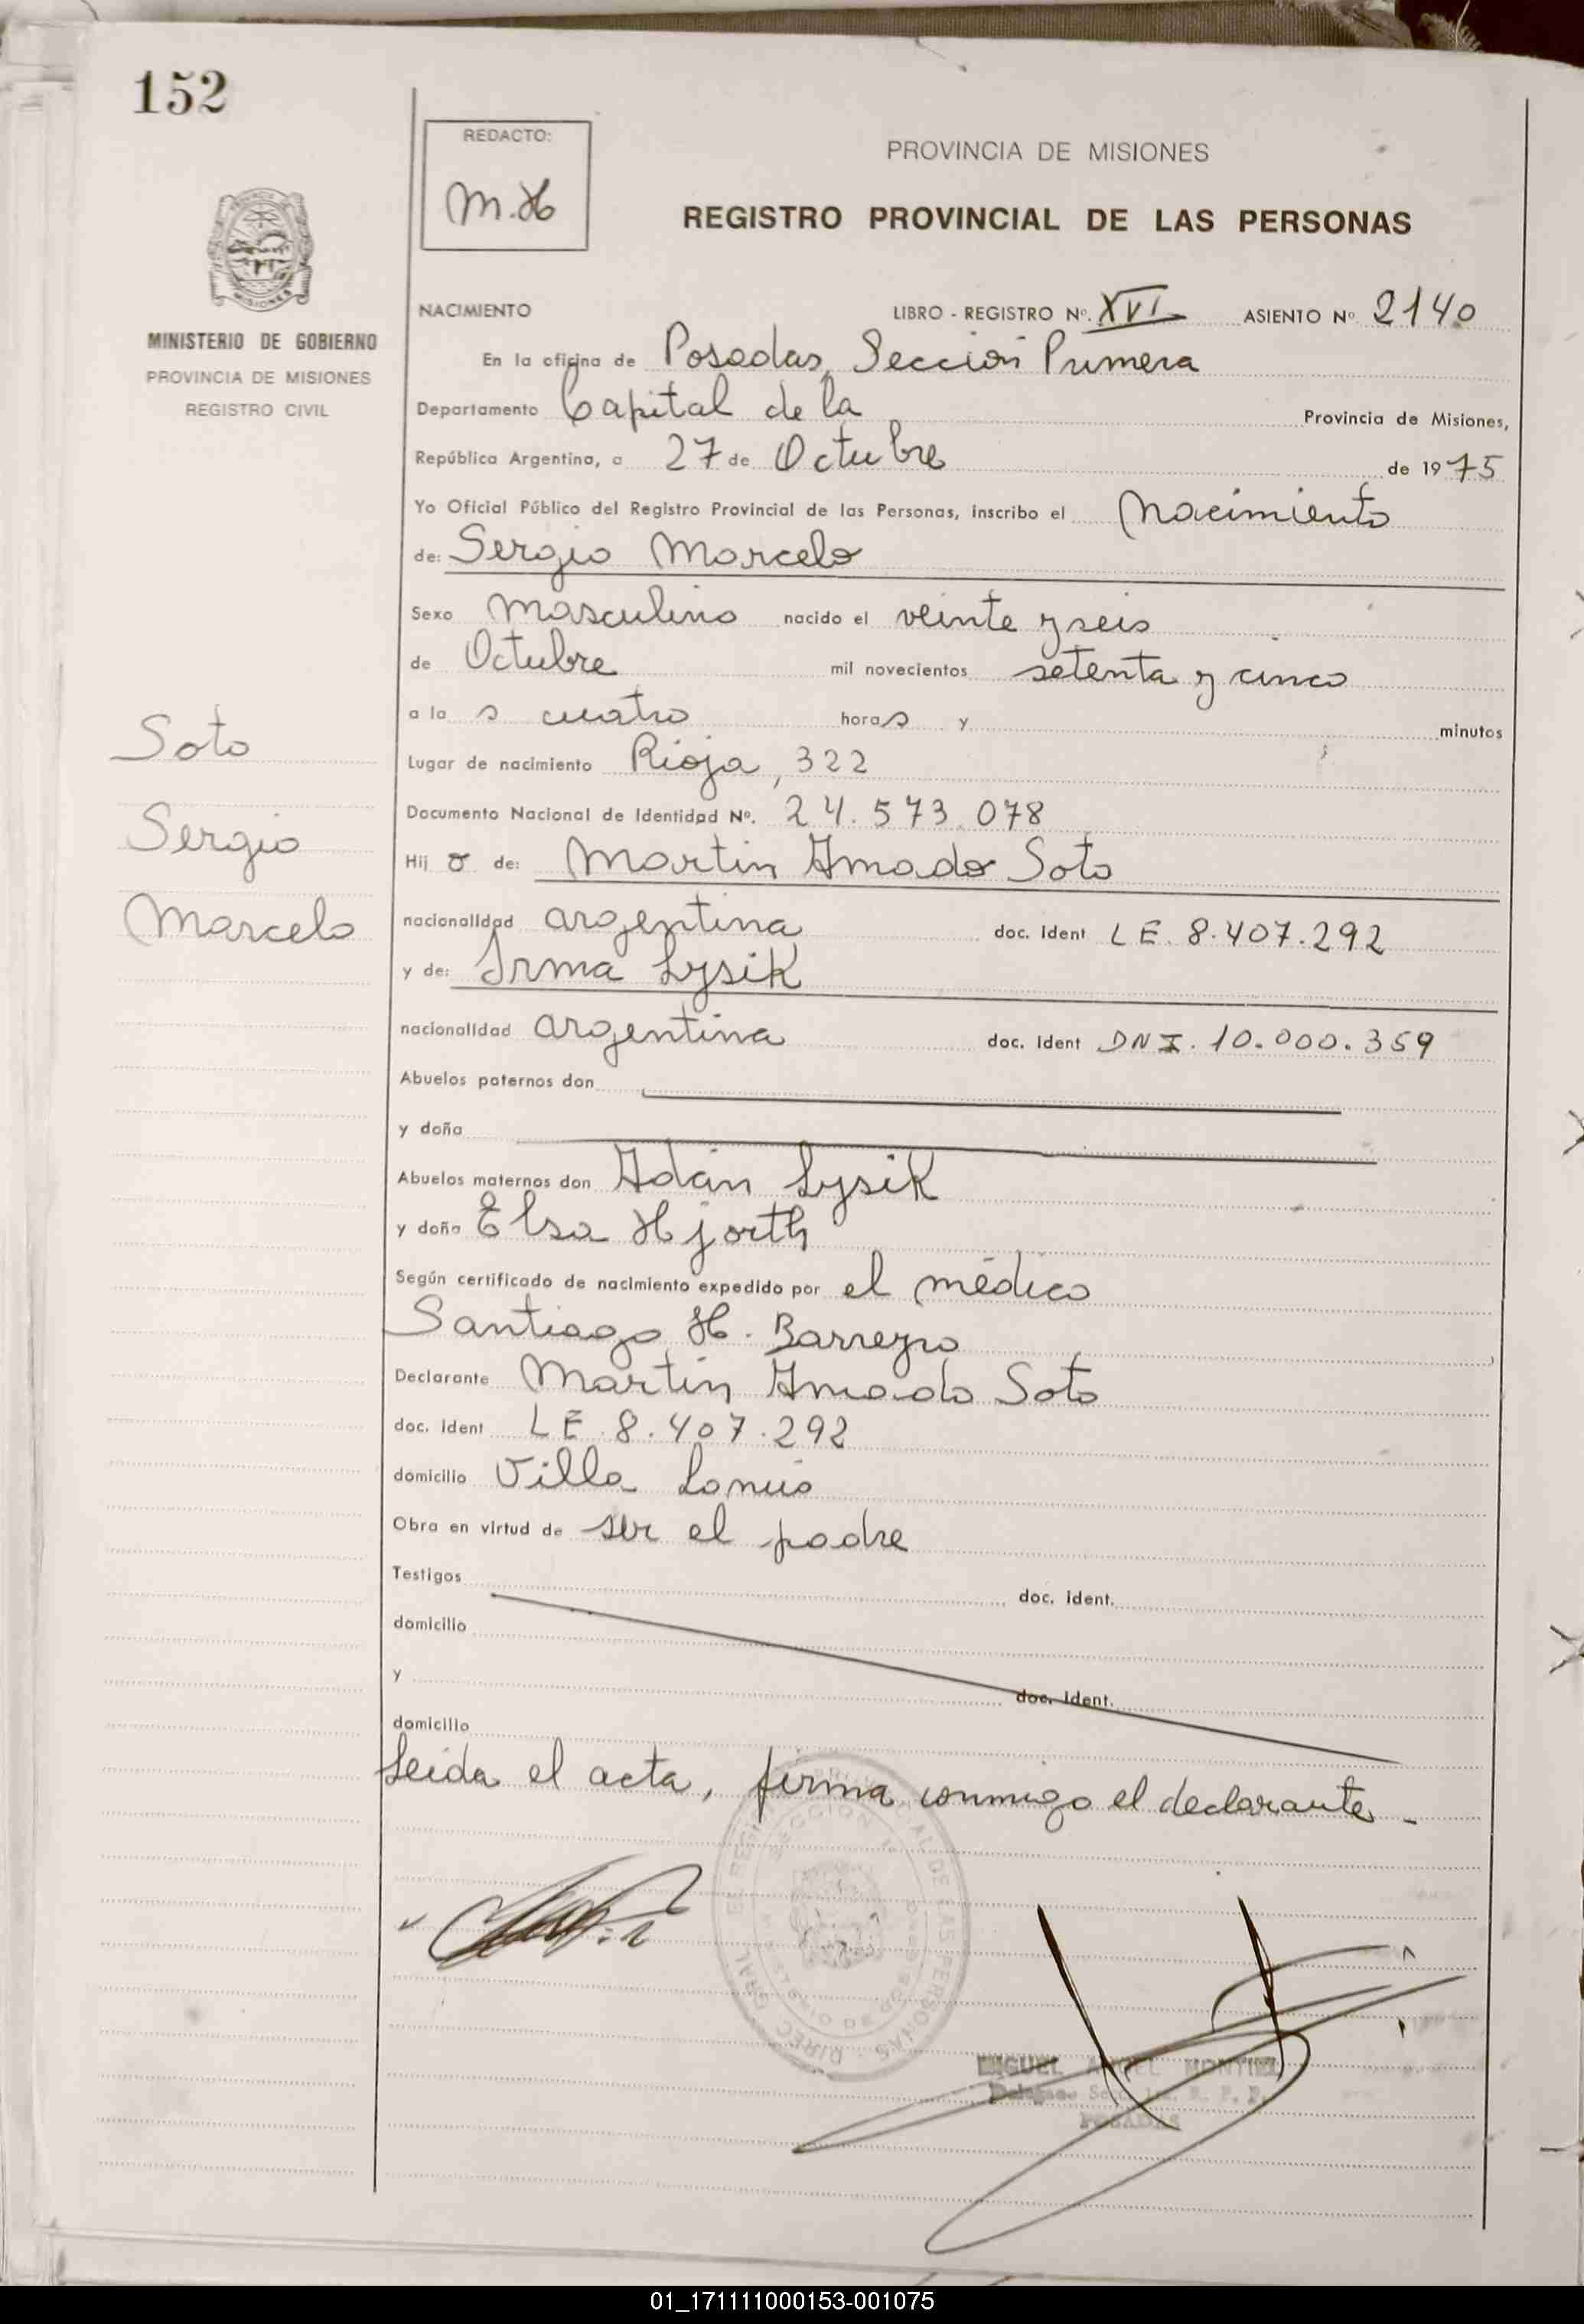 152
REDACTO:
M.H
PROVINCIA DE MISIONES
REGISTRO PROVINCIAL DE LAS PERSONAS
MINISTERIO DE GOBIERNO
PROVINCIA DE MISIONES
REGISTRO CIVIL
NACIMIENTO LIBRO - REGISTRO Nº. XVI ASIENTO Nº 2140
En la oficina de Posadas, Sección Primera
Departamento Capital de la Provincia de Misiones,
República Argentina, a 27 de Octubre de 1975
Yo Oficial Público del Registro Provincial de las Personas, inscribo el Nacimiento
de: Sergio Marcelo
Sexo Masculino nacido el veinte y seis
de Octubre mil novecientos setenta y cinco
a la s cuatro horas y minutos
Soto
Sergio
Marcelo
Lugar de nacimiento Rioja, 322
Documento Nacional de Identidad Nº. 24.573.078
Hij o de: Martin Amado Soto
nacionalidad argentina doc. ident LE. 8.407.292
y de: Irma Lysik
nacionalidad argentina doc. ident DNI. 10.000.359
Abuelos paternos don
y doña
Abuelos maternos don Adán Lysik
y doña Elsa Hjorth
Según certificado de nacimiento expedido por el médico
Santiago H. Barreyro
Declarante Martin Amado Soto
doc. ident LE. 8.407.292
domicilio Villa Lanús
Obra en virtud de ser el padre
Testigos doc. ident.
domicilio
y doc. ident.
domicilio
Leida el acta, firma conmigo el declarante.
MIGUEL ANGEL MONTIEL
POSADAS
01_171111000153-001075